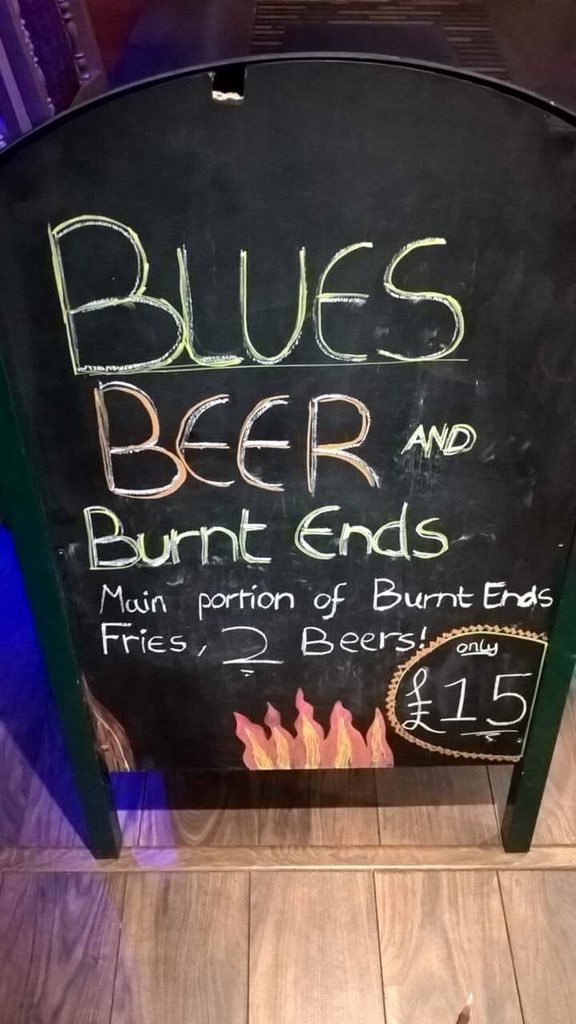 BLUES
BEER AND
Burnt Ends
Main portion of Burnt Ends
Fries, 2 Beers!
only
£15